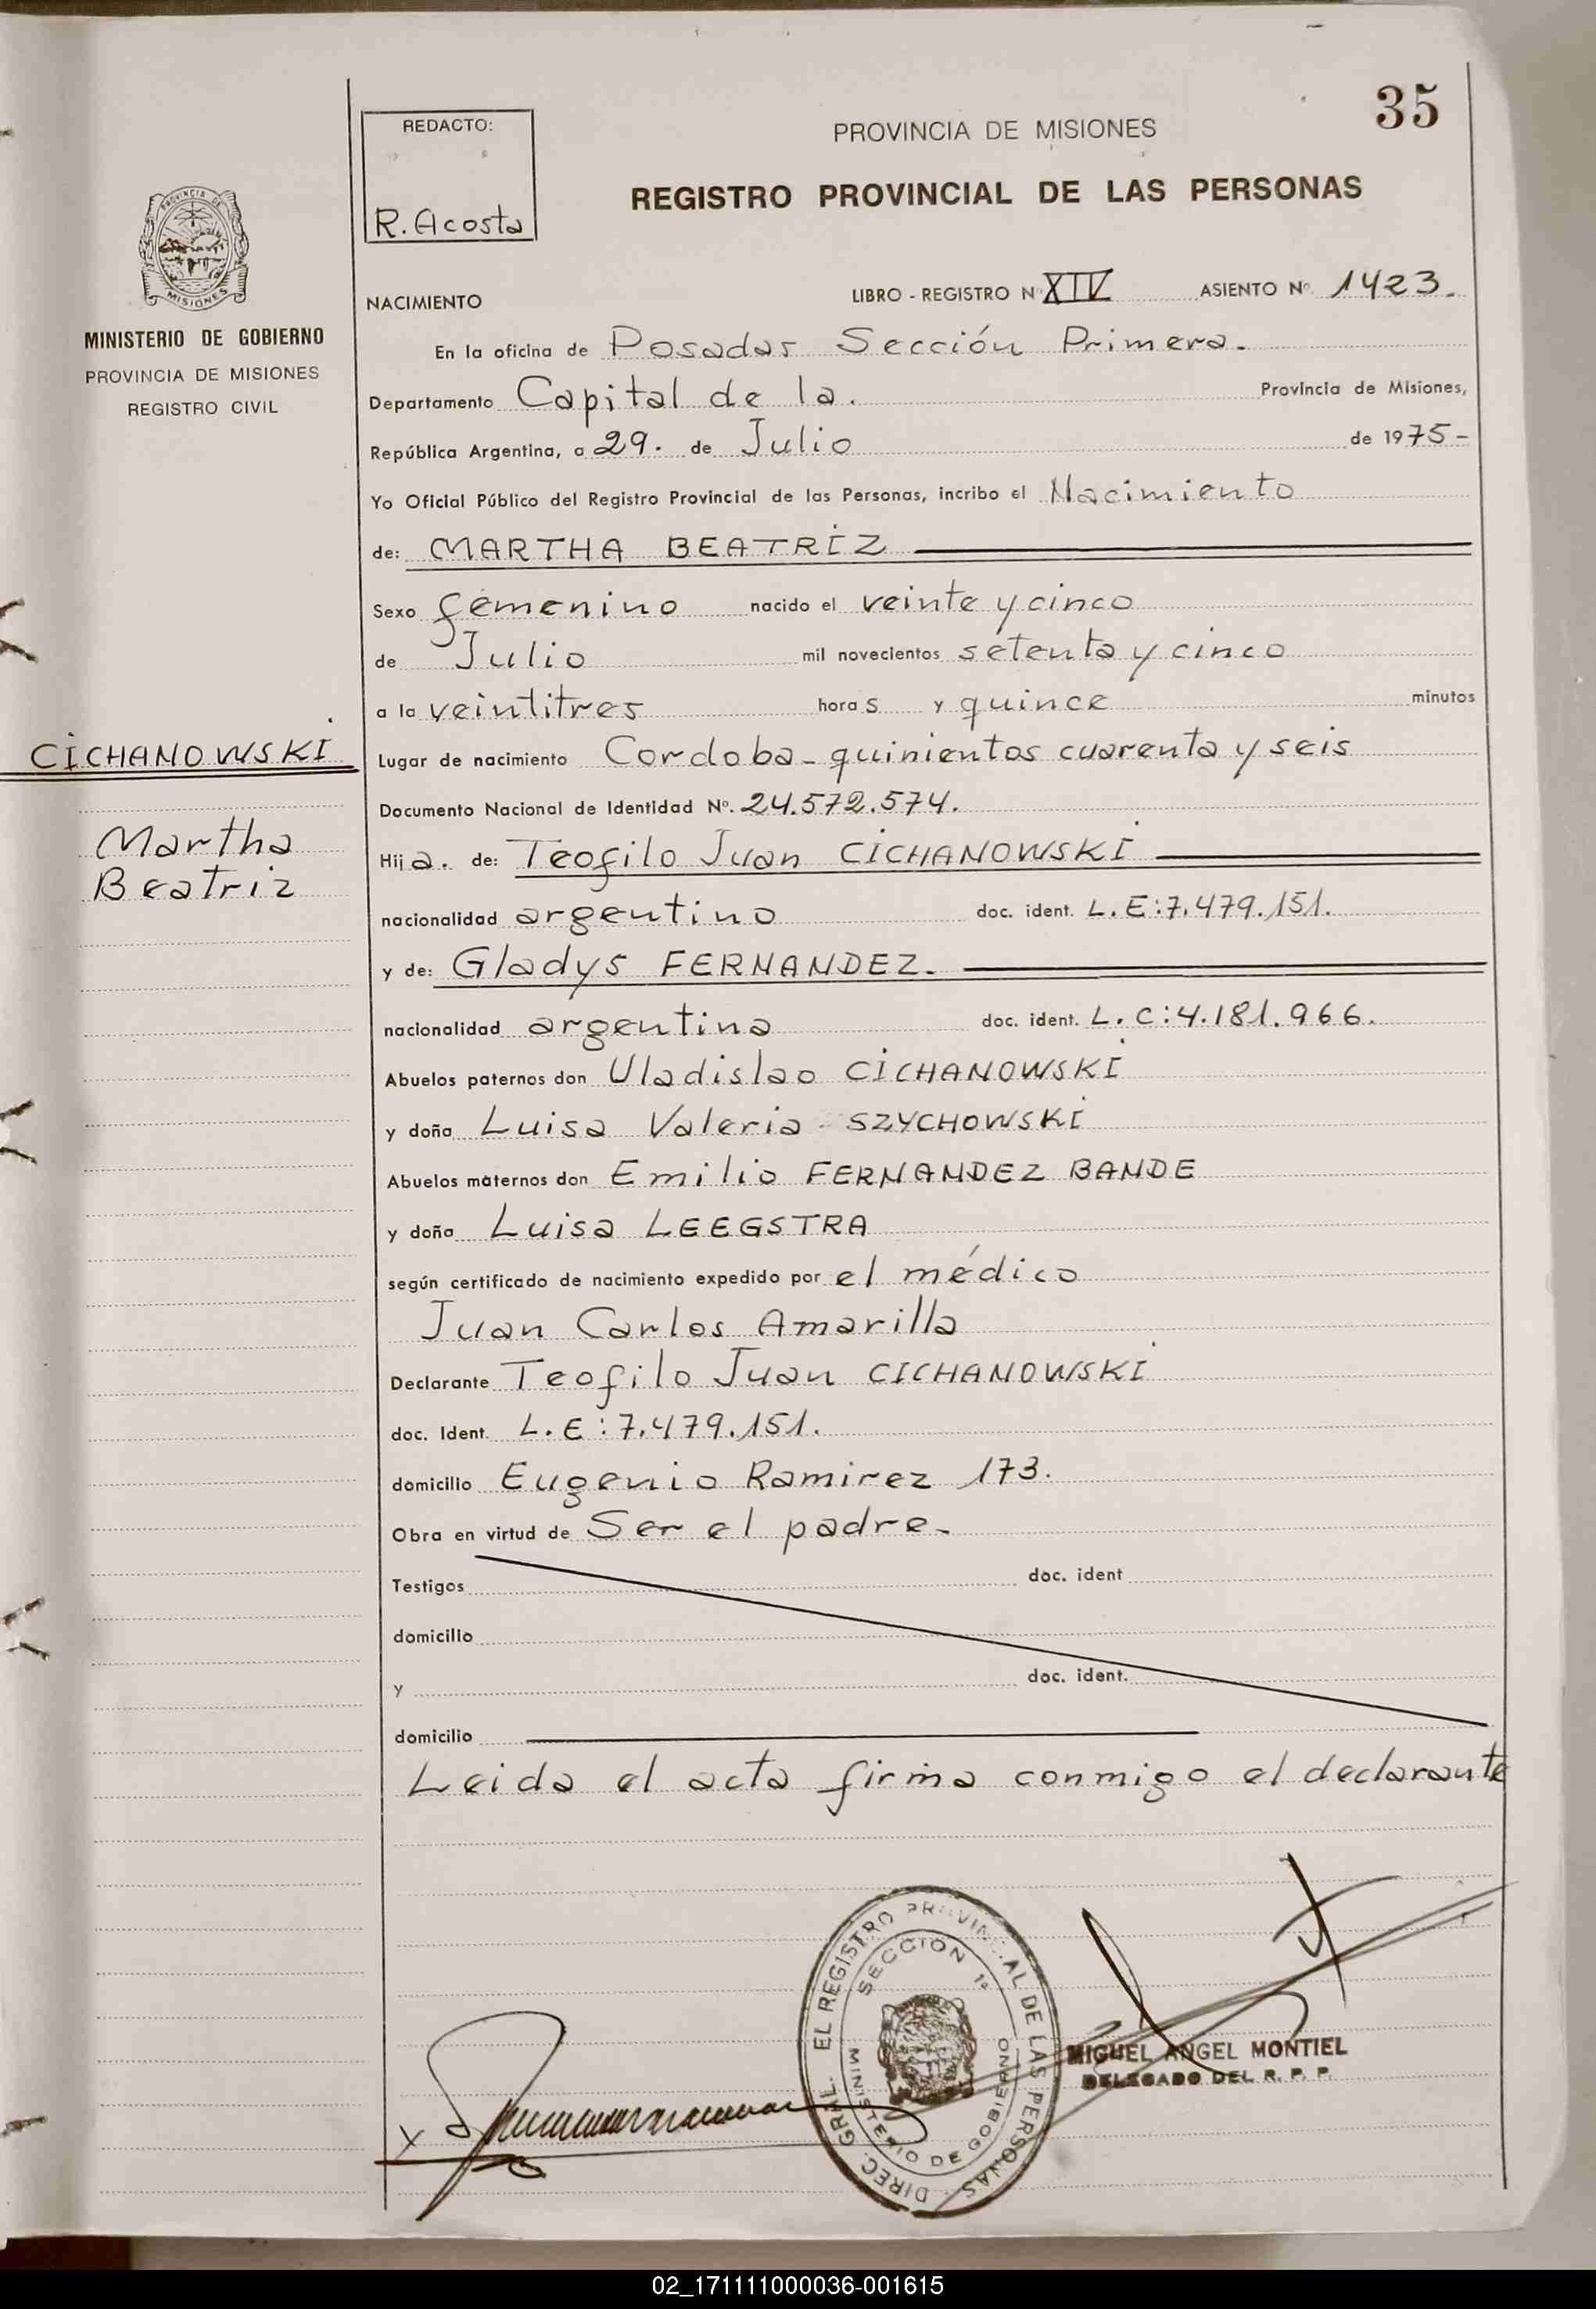 35
REDACTO:
R. Acosta
PROVINCIA DE MISIONES
REGISTRO PROVINCIAL DE LAS PERSONAS
PROVINCIA DE
MISIONES
MINISTERIO DE GOBIERNO
PROVINCIA DE MISIONES
REGISTRO CIVIL
CICHANOWSKI
Martha
Beatriz
NACIMIENTO LIBRO - REGISTRO Nº XIV ASIENTO Nº 1423.
En la oficina de Posadas Sección Primera.
Departamento Capital de la. Provincia de Misiones,
República Argentina, a 29. de Julio de 1975-
Yo Oficial Público del Registro Provincial de las Personas, incribo el Nacimiento
de: MARTHA BEATRIZ
Sexo femenino nacido el veinte y cinco
de Julio mil novecientos setenta y cinco
a la veintitres horas y quince minutos
Lugar de nacimiento Cordoba - quinientos cuarenta y seis
Documento Nacional de Identidad Nº. 24.572.574.
Hija. de: Teofilo Juan CICHANOWSKI
nacionalidad argentino doc. ident. L.E:7.479.151.
y de: Gladys FERNANDEZ.
nacionalidad argentina doc. ident. L.C:4.181.966.
Abuelos paternos don Uladislao CICHANOWSKI
y doña Luisa Valeria SZYCHOWSKI
Abuelos maternos don Emilio FERNANDEZ BANDE
y doña Luisa LEEGSTRA
según certificado de nacimiento expedido por el médico
Juan Carlos Amarilla
Declarante Teofilo Juan CICHANOWSKI
doc. Ident. L.E:7.479.151.
domicilio Eugenio Ramirez 173.
Obra en virtud de Ser el padre.
Testigos doc. ident
domicilio
y doc. ident.
domicilio
Leida el acta firma conmigo el declarante
DIREC. GRAL. EL REGISTRO PROVINCIAL DE LAS PERSONAS
SECCION 1ª
MINISTERIO DE GOBIERNO
MIGUEL ANGEL MONTIEL
DELEGADO DEL R. P. P.
X
02_171111000036-001615